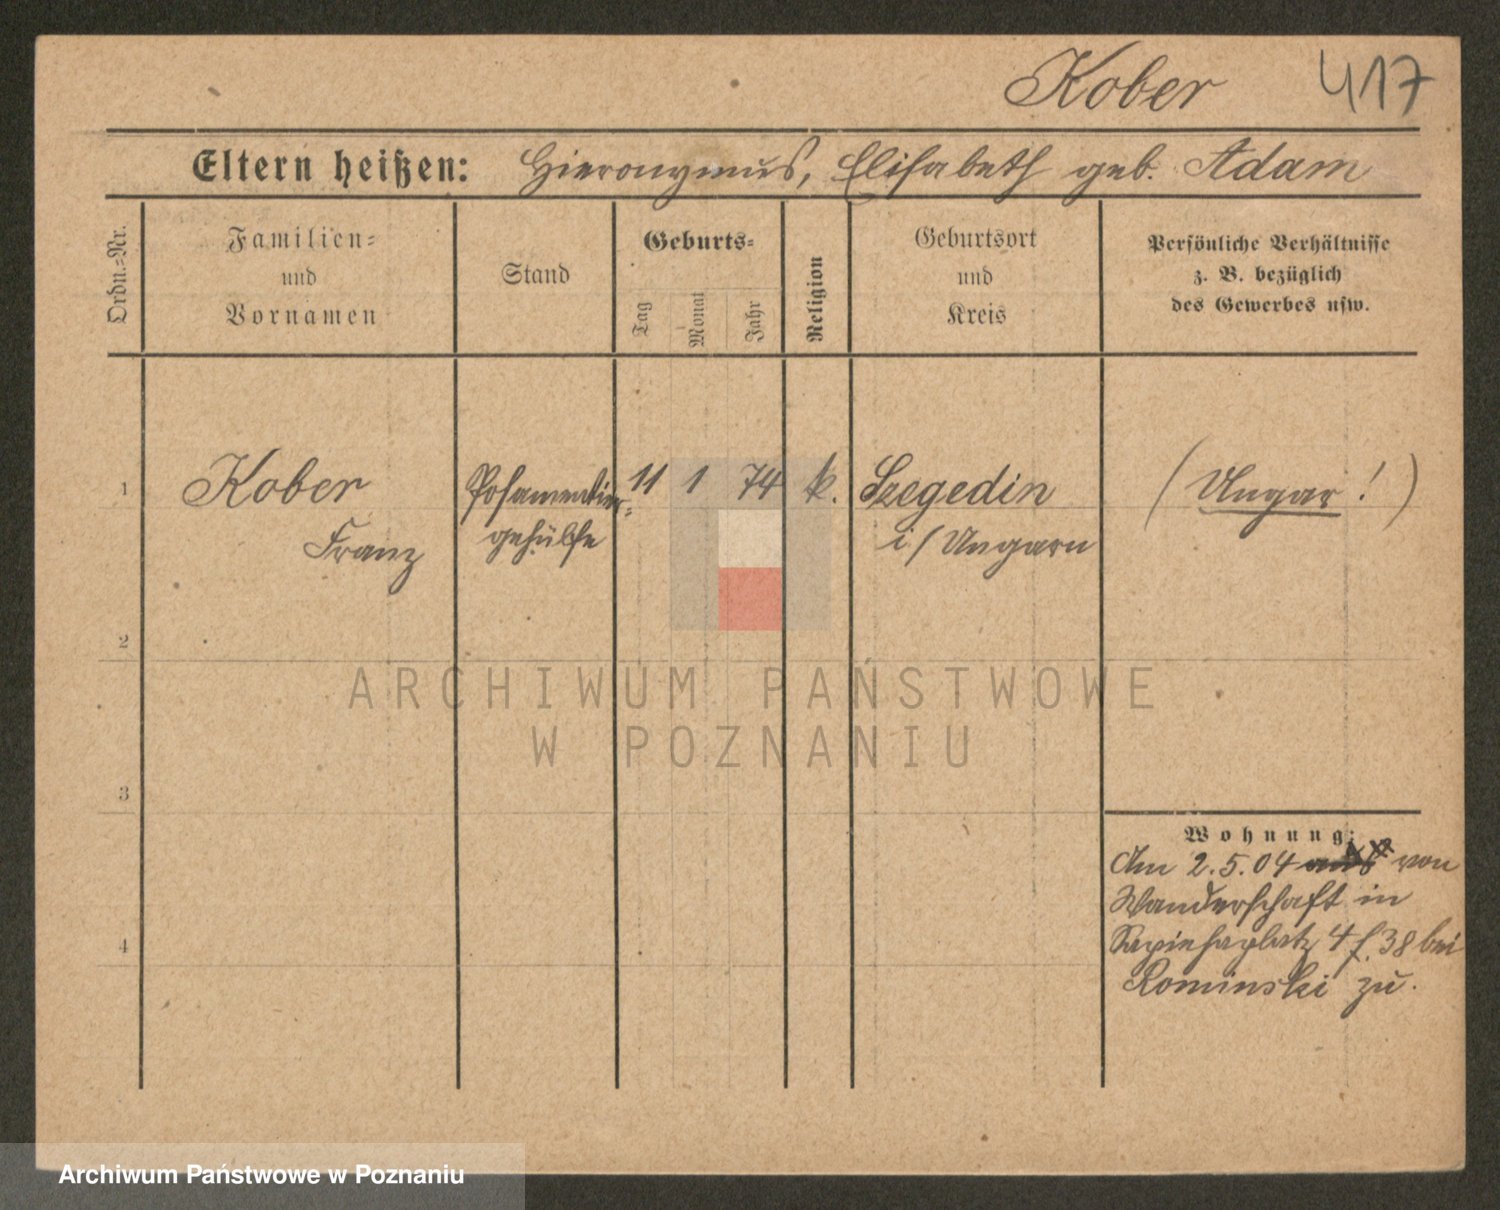 Kober 417
Eltern heißen: Hieronymus, Elisabeth geb. Adam
Ordn.-Nr.
Familien-
und
Vornamen
Stand
Geburts-
Tag
Monat
Jahr
Religion
Geburtsort
und
Kreis
Persönliche Verhältnisse
z. B. bezüglich
des Gewerbes usw.
1 Kober Posamentier- 11 1 74 k. Szegedin (Ungar!)
Franz gehülfe i/Ungarn
2
ARCHIWUM PAŃSTWOWE
W POZNANIU
3
Wohnung:
Am 2.5.04 von
Wanderschaft in
4 Sapiehaplatz 4 f. 38 bei
Rominski zu.
Archiwum Państwowe w Poznaniu